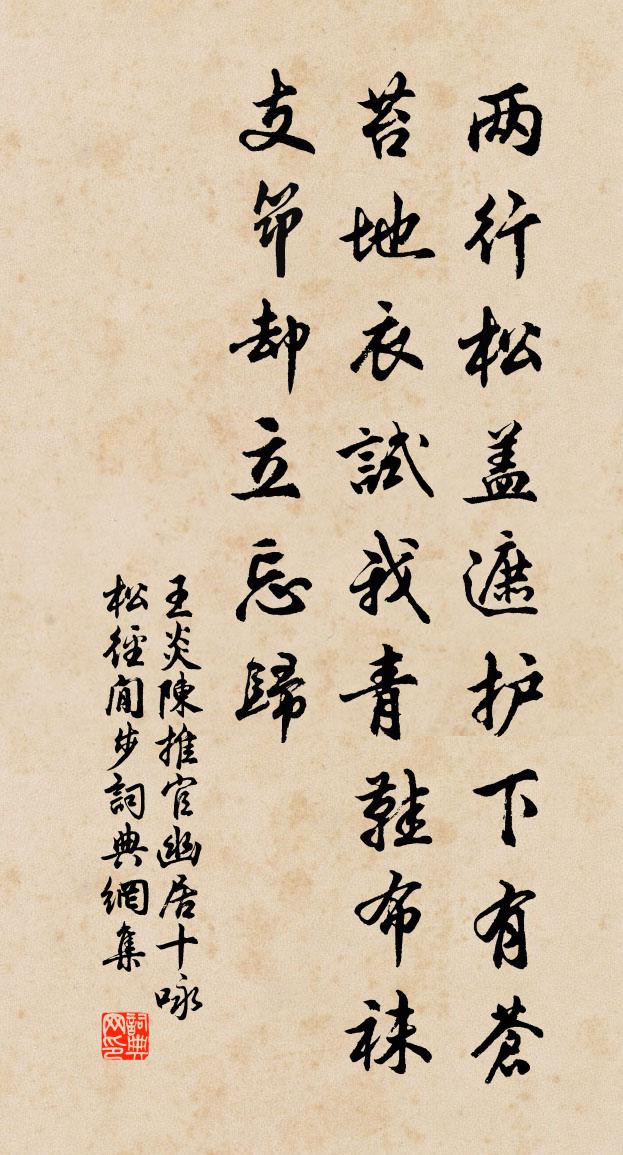 两行松盖遮护下有苍
苔地衣試我青鞋布袜
支笻却立忘歸
王炎陳推官幽居十咏
松徑閒步詞典網集
詞典网印